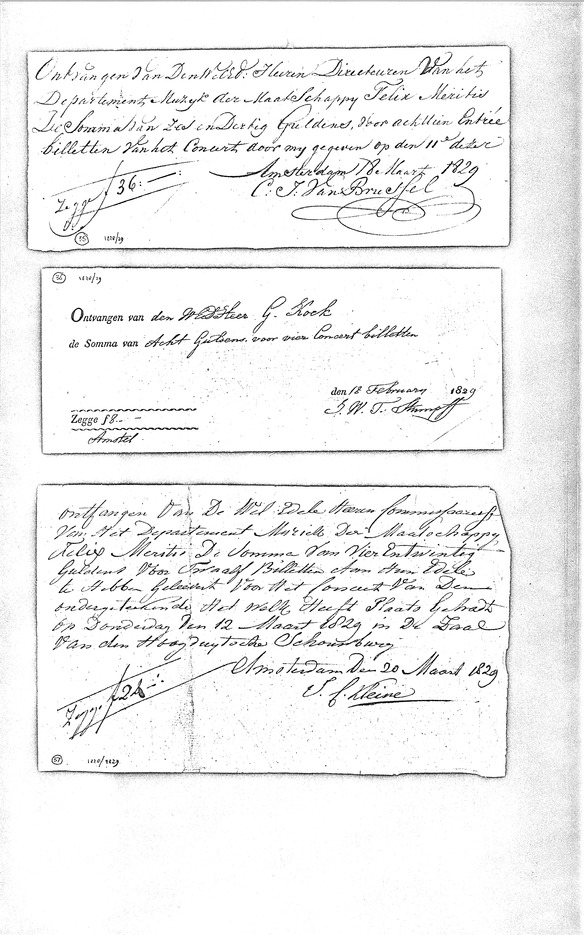 Ontvangen Van Den WelEd: Heeren Directeuren Van het
Departement Muzyk der MaatSchappy Felix Meritis
De Somma van Zes en Dertig Guldens, voor achttien Entrée
billetten Van het Concert door my gegeven op den 11e dezer
Amsterdam 18e Maart 1829
Zegge f 36:—
C. J. Van Brussel
55 1828/29
56 1828/29
Ontvangen van den WelEdHeer G. Kock
de Somma van Acht Guldens. voor vier Concert billetten
den 18 February 1829
Zegge f 8.. -
J. W. T. Stumpff
Amstel
ontfangen Van De Wel Edele Heeren Commissarissen
Van Het Departement Muziek Der Maatschappy
Felix Meritis De Somma Van Vier Entwintig
Guldens Voor Twaalf Billetten Aan Hun Edele
te Hebben Gelevert Voor Het Concert Van Den
ondergeteekende Het Welk Heeft Plaats Gehadt
op Donderdag Den 12 Maart 1829 in De Zaal
Van den Hoogduytsche Schouwburg
Amsterdam Den 20 Maart 1829
Zegge f 24 -:-
J. C. Kleine
57 1828/1829